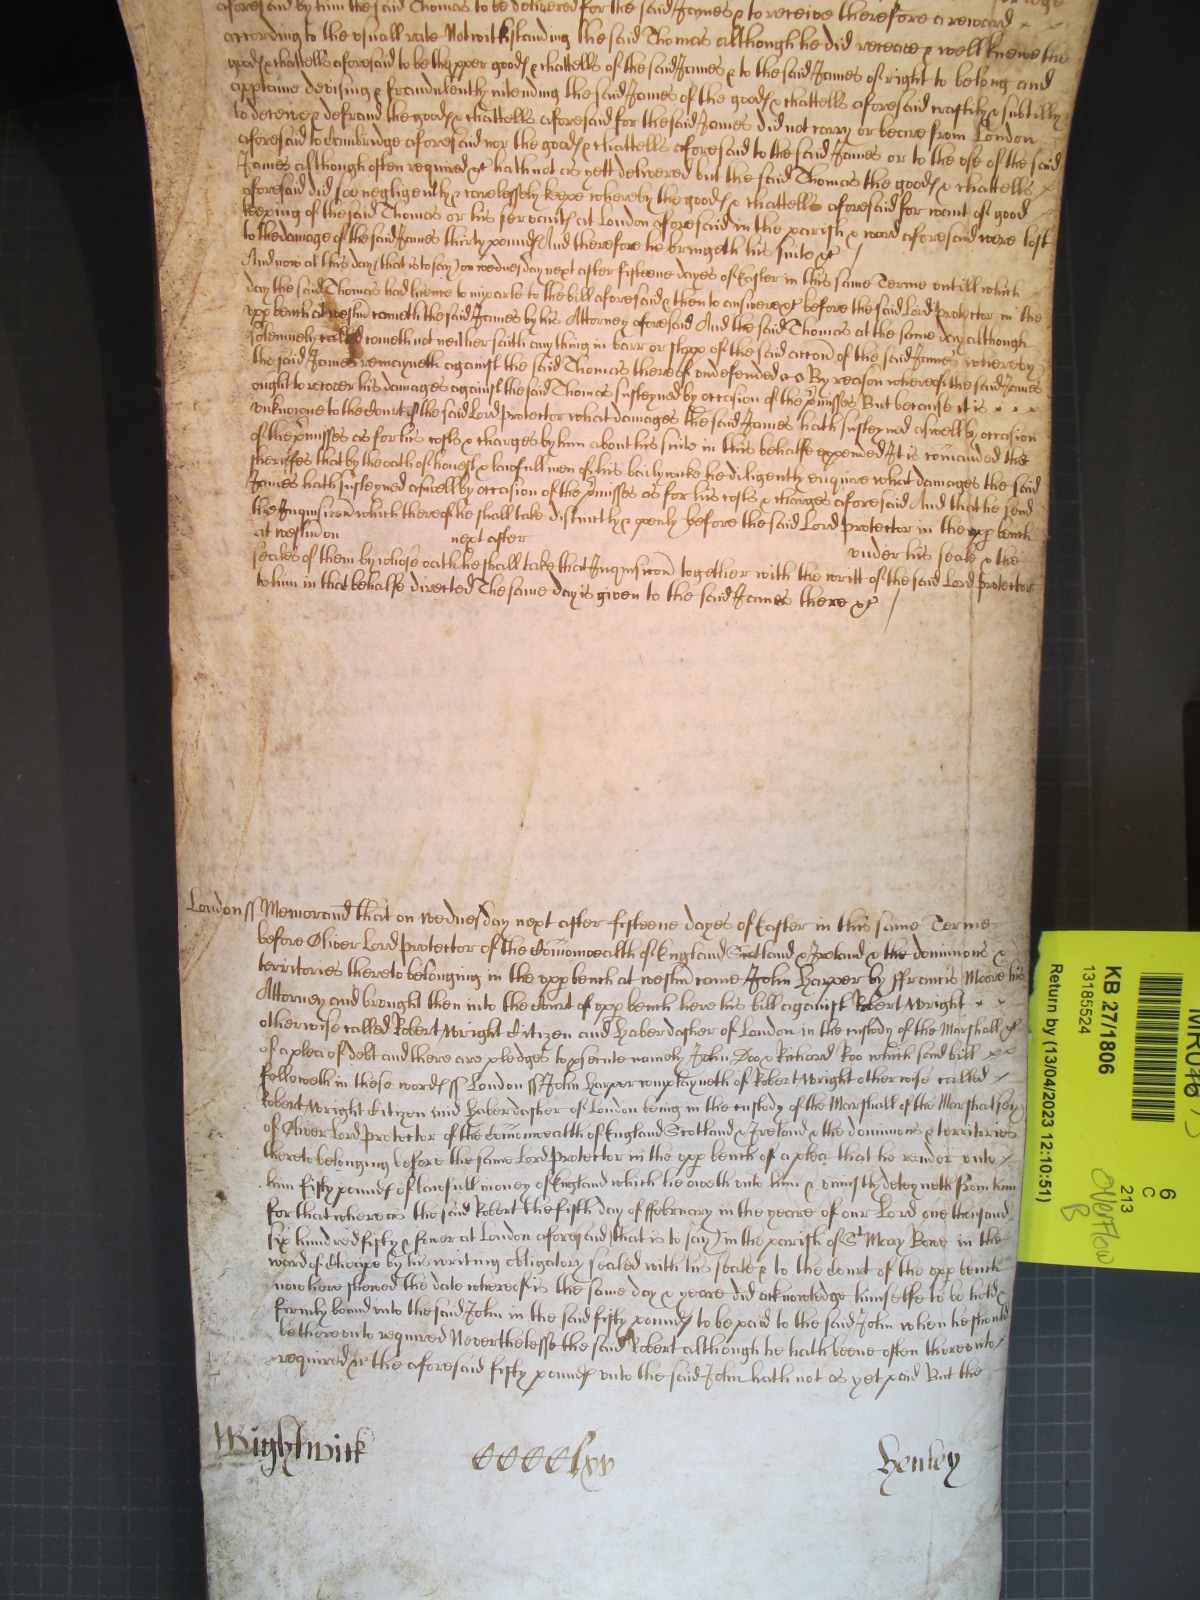 aforesaid by him the said Thomas to be delivered for the said James & to receive therefore a reward
according to the usuall rate Notwithstanding the said Thomas although he did receave & well knewe the
goodℯ & chattells aforesaid to be the ꝓper goodℯ & chattells of the said James & to the said James of right to belong and
apptaine devising & fraudulently intending the said James of the goodℯ & chattells aforesaid craftily & subtilly
to deceive & defraud the goodℯ & chattells aforesaid for the said James did not carry or beare from London
aforesaid to Cambridge aforesaid nor the goodℯ & chattells aforesaid to the said James or to the use of the said
James although often required &c hath not as yett delivered but the said Thomas the goodℯ & chattells
aforesaid did soe negligently & carelessely keepe whereby the goodℯ & chattells aforesaid for want of good
keeping of the said Thomas or his servantℯ at London aforesaid in the parish & ward aforesaid were lost
to the damage of the said James thirty poundℯ And therefore he bringeth his suite &c
And now at this day (that is to say) on wednesday next after fifteene dayes of Easter in this same Terme untill which
day the said Thomas had licence to imparle to the bill aforesaid & then to answere &c before the said Lord Protector in the
upp bench at westm cometh the said James by his Attorney aforesaid And the said Thomas at the same day although
solemnely called cometh not neither saith any thing in barr or stopp of the said accon of the said James whereby
the said James remayneth against the said Thomas thereof undefended &c By reason whereof the said James
ought to recover his damages against the said Thomas susteyned by occasion of the p̄misses But because it is
unknowne to the Court of the said Lord Protector what damages the said James hath susteyned aswell by occasion
of the p̄misses as for his costs & charges by him about his suite in this behalfe expended It is comanded the
sheriffes that by the oath of honest & lawfull men of his bailywicke he diligently enquire what damages the said
James hath susteyned aswell by occasion of the p̄misses as for his costs & charges aforesaid And that he send
the Inquisicon which thereof he shall take distinctly & openly before the said Lord Protector in the upp bench
at westm on next after under his seale & the
seales of them by whose oath he shall take that Inquisicon together with the writt of the said Lord Protector
to him in that behalfe directed The same day is given to the said James there &c
London ss Memorand that on wednesday next after fifteene dayes of Easter in this same Terme
before Oliver Lord Protector of the Comonwealth of England Scotland & Ireland & the dominions &
territories thereto belonging in the upp bench at westm came John Harper by ffrancis Moore his
Attorney and brought then into the Court of upp bench here his bill against Robert Wright
otherwise called Robert Wright Citizen and Haberdasher of London in the custody of the Marshall &c
of a plea of debt and there are pledges to ꝓsecute namely John Doo & Richard Roo which said bill
followeth in these wordℯ ss London ss John Harper complayneth of Robert Wright otherwise called
Robert Wright Citizen and Haberdasher of London being in the custody of the Marshall of the Marshalsey
of Oliver Lord Protector of the Comonwealth of England Scotland & Ireland & the dominions & territories
thereto belonging before the same Lord Protector in the upp bench of a plea that he render unto
him fifty poundℯ of lawfull money of England which he oweth unto him & uniustly deteyneth from him
For that whereas the said Robert the fifth day of ffebruary in the yeare of our Lord one thousand
six hundred fifty & fower at London aforesaid (that is to say) in the parish of St Mary Bowe in the
ward of Cheape by his writing obligatory sealed with his seale & to the Court of the upp bench
now here shewed the date whereof is the same day & yeare did acknowledge himselfe to be held &
firmly bound unto the said John in the said fifty poundℯ to be paid to the said John when he should
be thereunto required Neverthelesse the said Robert although he hath beene often thereunto
required &c the aforesaid fifty poundℯ unto the said John hath not as yet paid But the
Wightwick CCCClxv Henley
KB 27/1806
13185524
Return by (13/04/2023 12:10:51)
6
C
213
OVERFlow
B